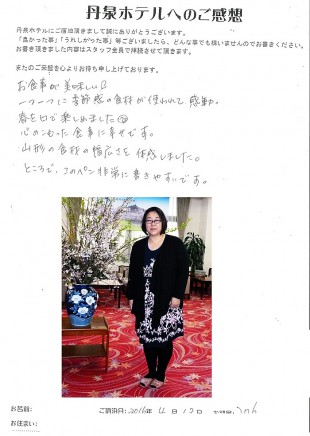 丹泉ホテルへのご感想
丹泉ホテルにご宿泊頂きまして誠にありがとうございます。
「良かった事」「うれしかった事」等ございましたら、どんな事でも構いませんのでお書きください。
お書き頂きました内容はスタッフ全員で拝読させて頂きます。
またのご来館を心よりお待ち申し上げております。
お食事が美味しい
一つ一つに季節感の食材が使われて感動。
春を目で楽しめました
心のこもった食事に幸せです。
山形の食材の幅広さを体感しました。
ところで、このペン非常に書きやすいです。
お名前:
ご宿泊日: 2016年 4月 12日
お住まい: